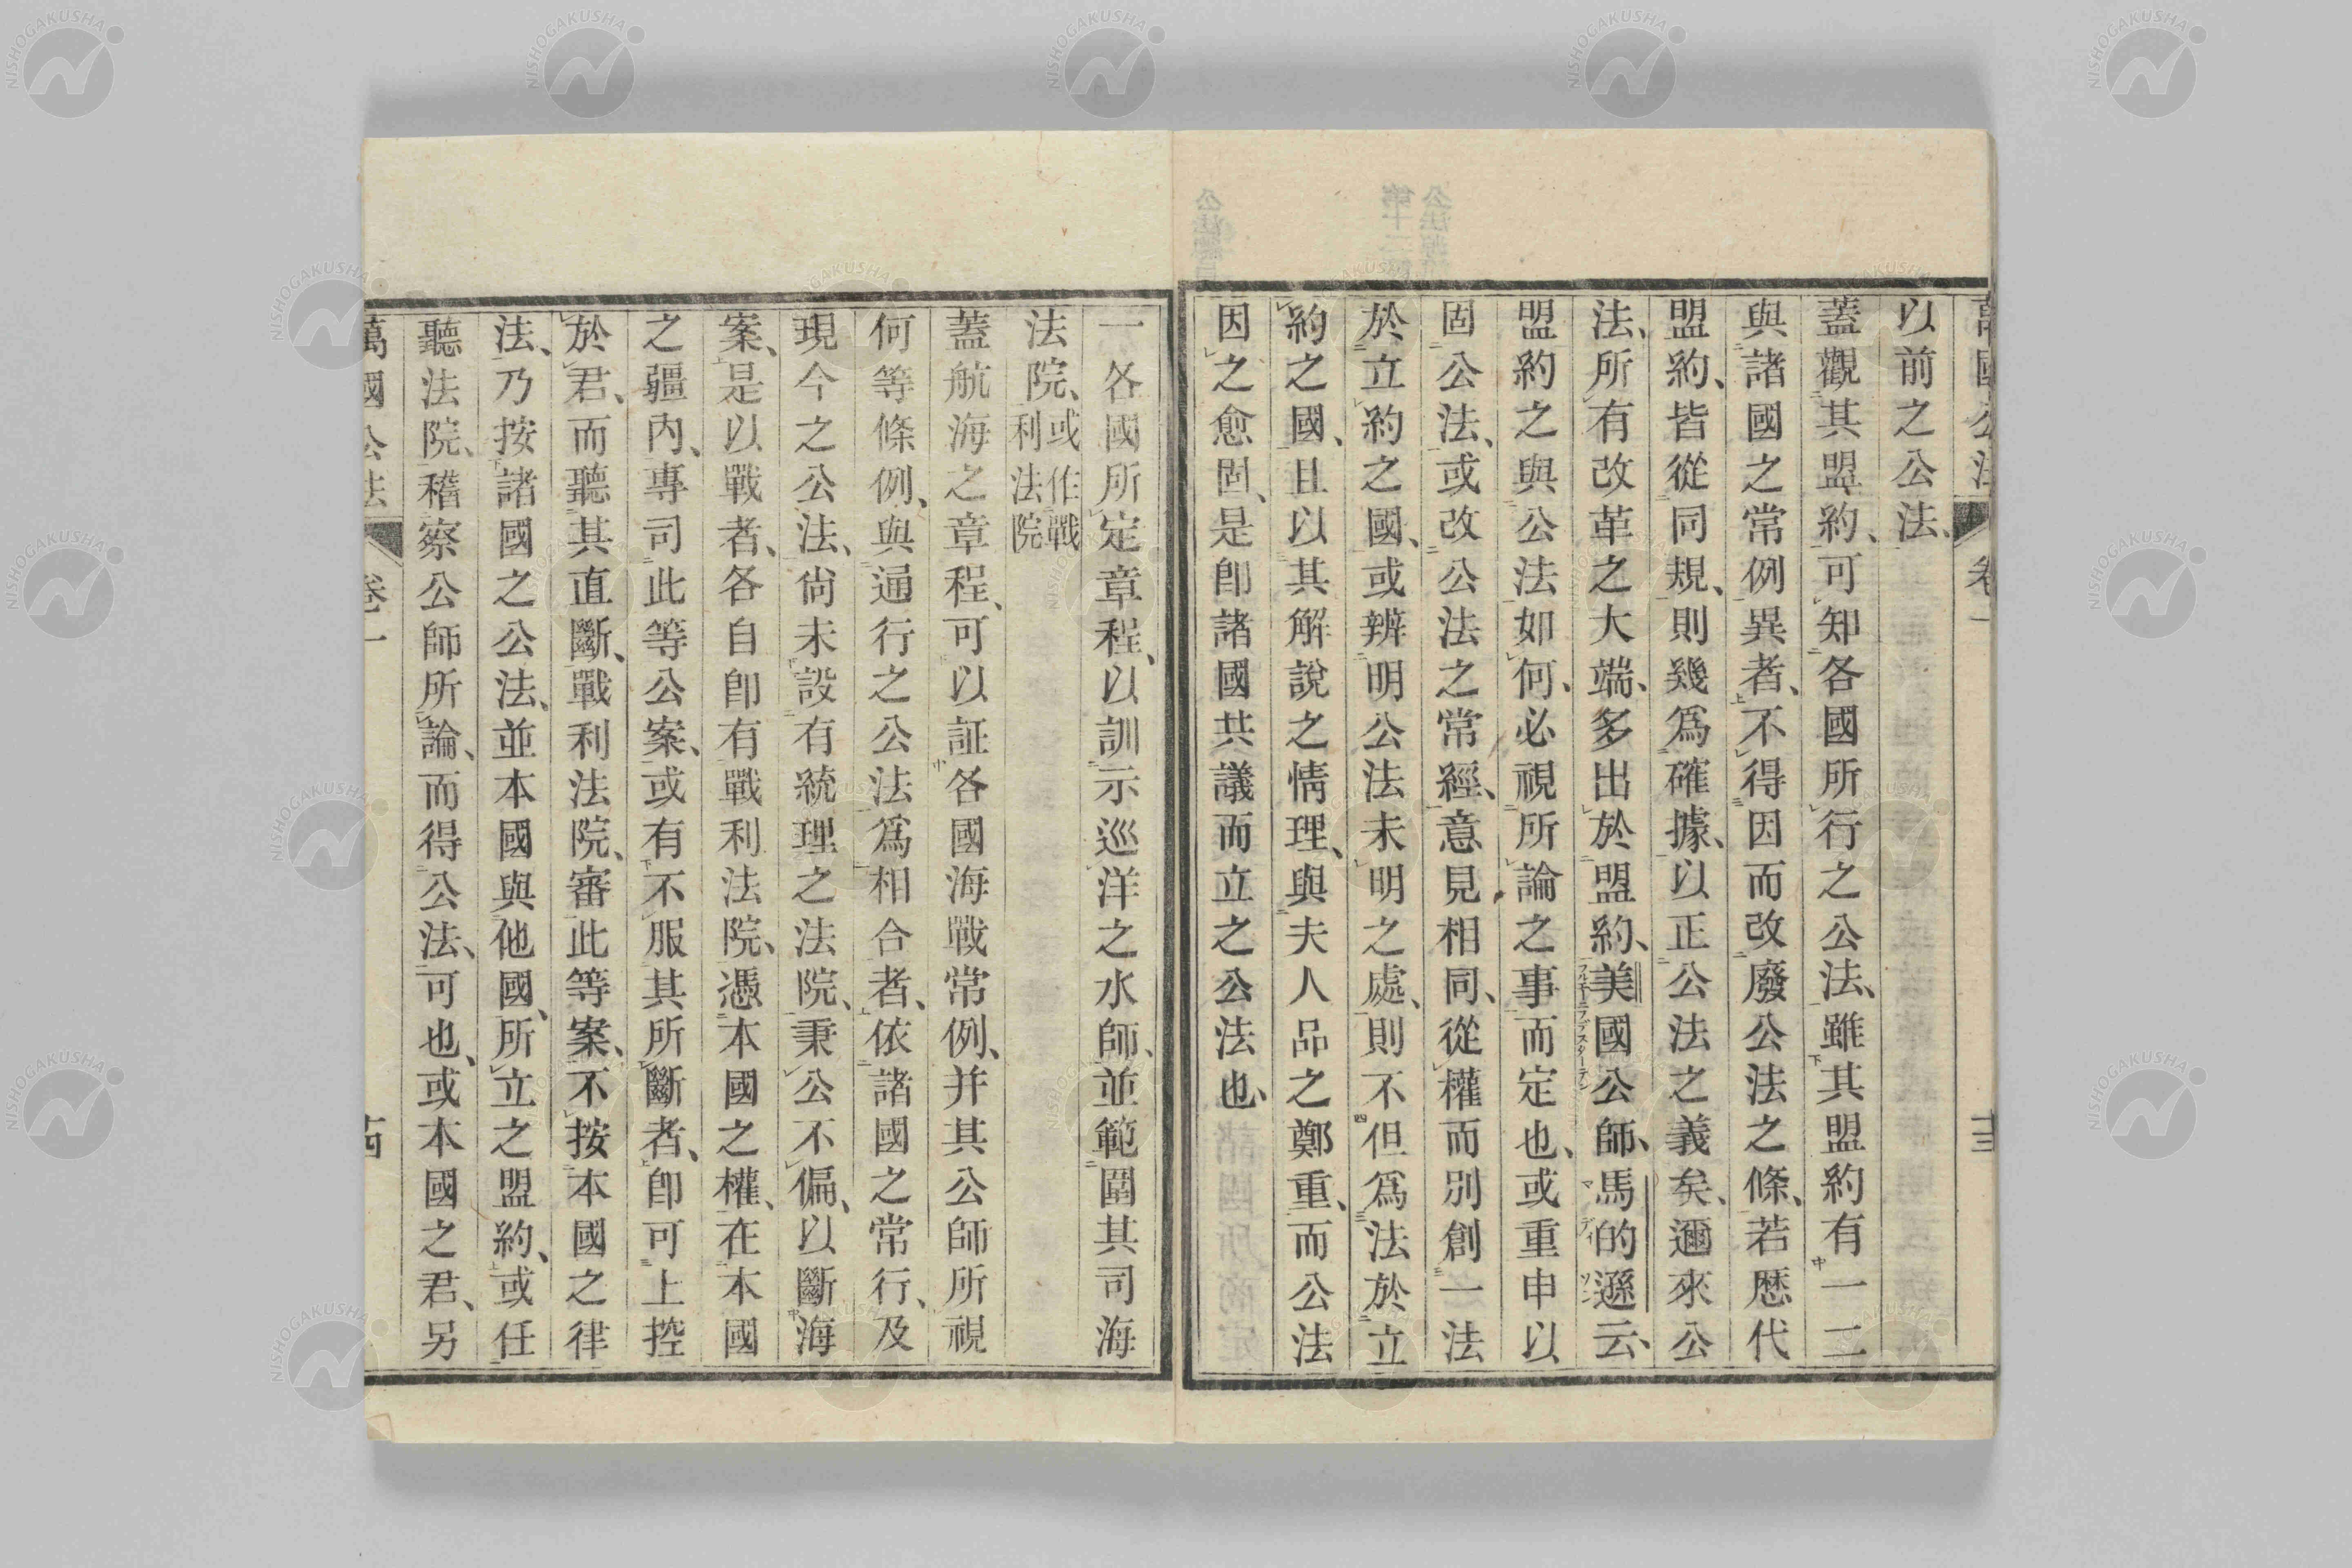 以前之公法、
蓋觀其盟約、可知各國所行之公法、雖其盟約有一二
與諸國之常例異者、不得因而改廢公法之條、若歷代
盟約、皆從同規、則幾爲確據、以正公法之義矣、邇來公
法、所有改革之大端、多出於盟約、美國公師、馬的遜云、
フルヱーニフデスターテン
マ ディ ソン
盟約之與公法如何、必視所論之事而定也、或重申以
固公法、或改公法之常經、意見相同、從權而別創一法
於立約之國、或辨明公法未明之處、則不但爲法於立
約之國、且以其解說之情理、與夫人品之鄭重、而公法
因之愈固、是卽諸國共議而立之公法也、
一各國所定章程、以訓示巡洋之水師、並範圍其司海
法院、或作戰利法院
蓋航海之章程、可以証各國海戰常例、并其公師所視
何等條例、與通行之公法爲相合者、依諸國之常行、及
現今之公法、尙未設有統理之法院、秉公不偏、以斷海
案、是以戰者、各自卽有戰利法院、憑本國之權、在本國
之疆內、專司此等公案、或有不服其所斷者、卽可上控
於君、而聽其直斷、戰利法院、審此等案、不按本國之律
法、乃按諸國之公法、並本國與他國、所立之盟約、或任
聽法院、稽察公師所論、而得公法、可也、或本國之君、另
萬國公法 卷一 十四
NISHOGAKUSHA